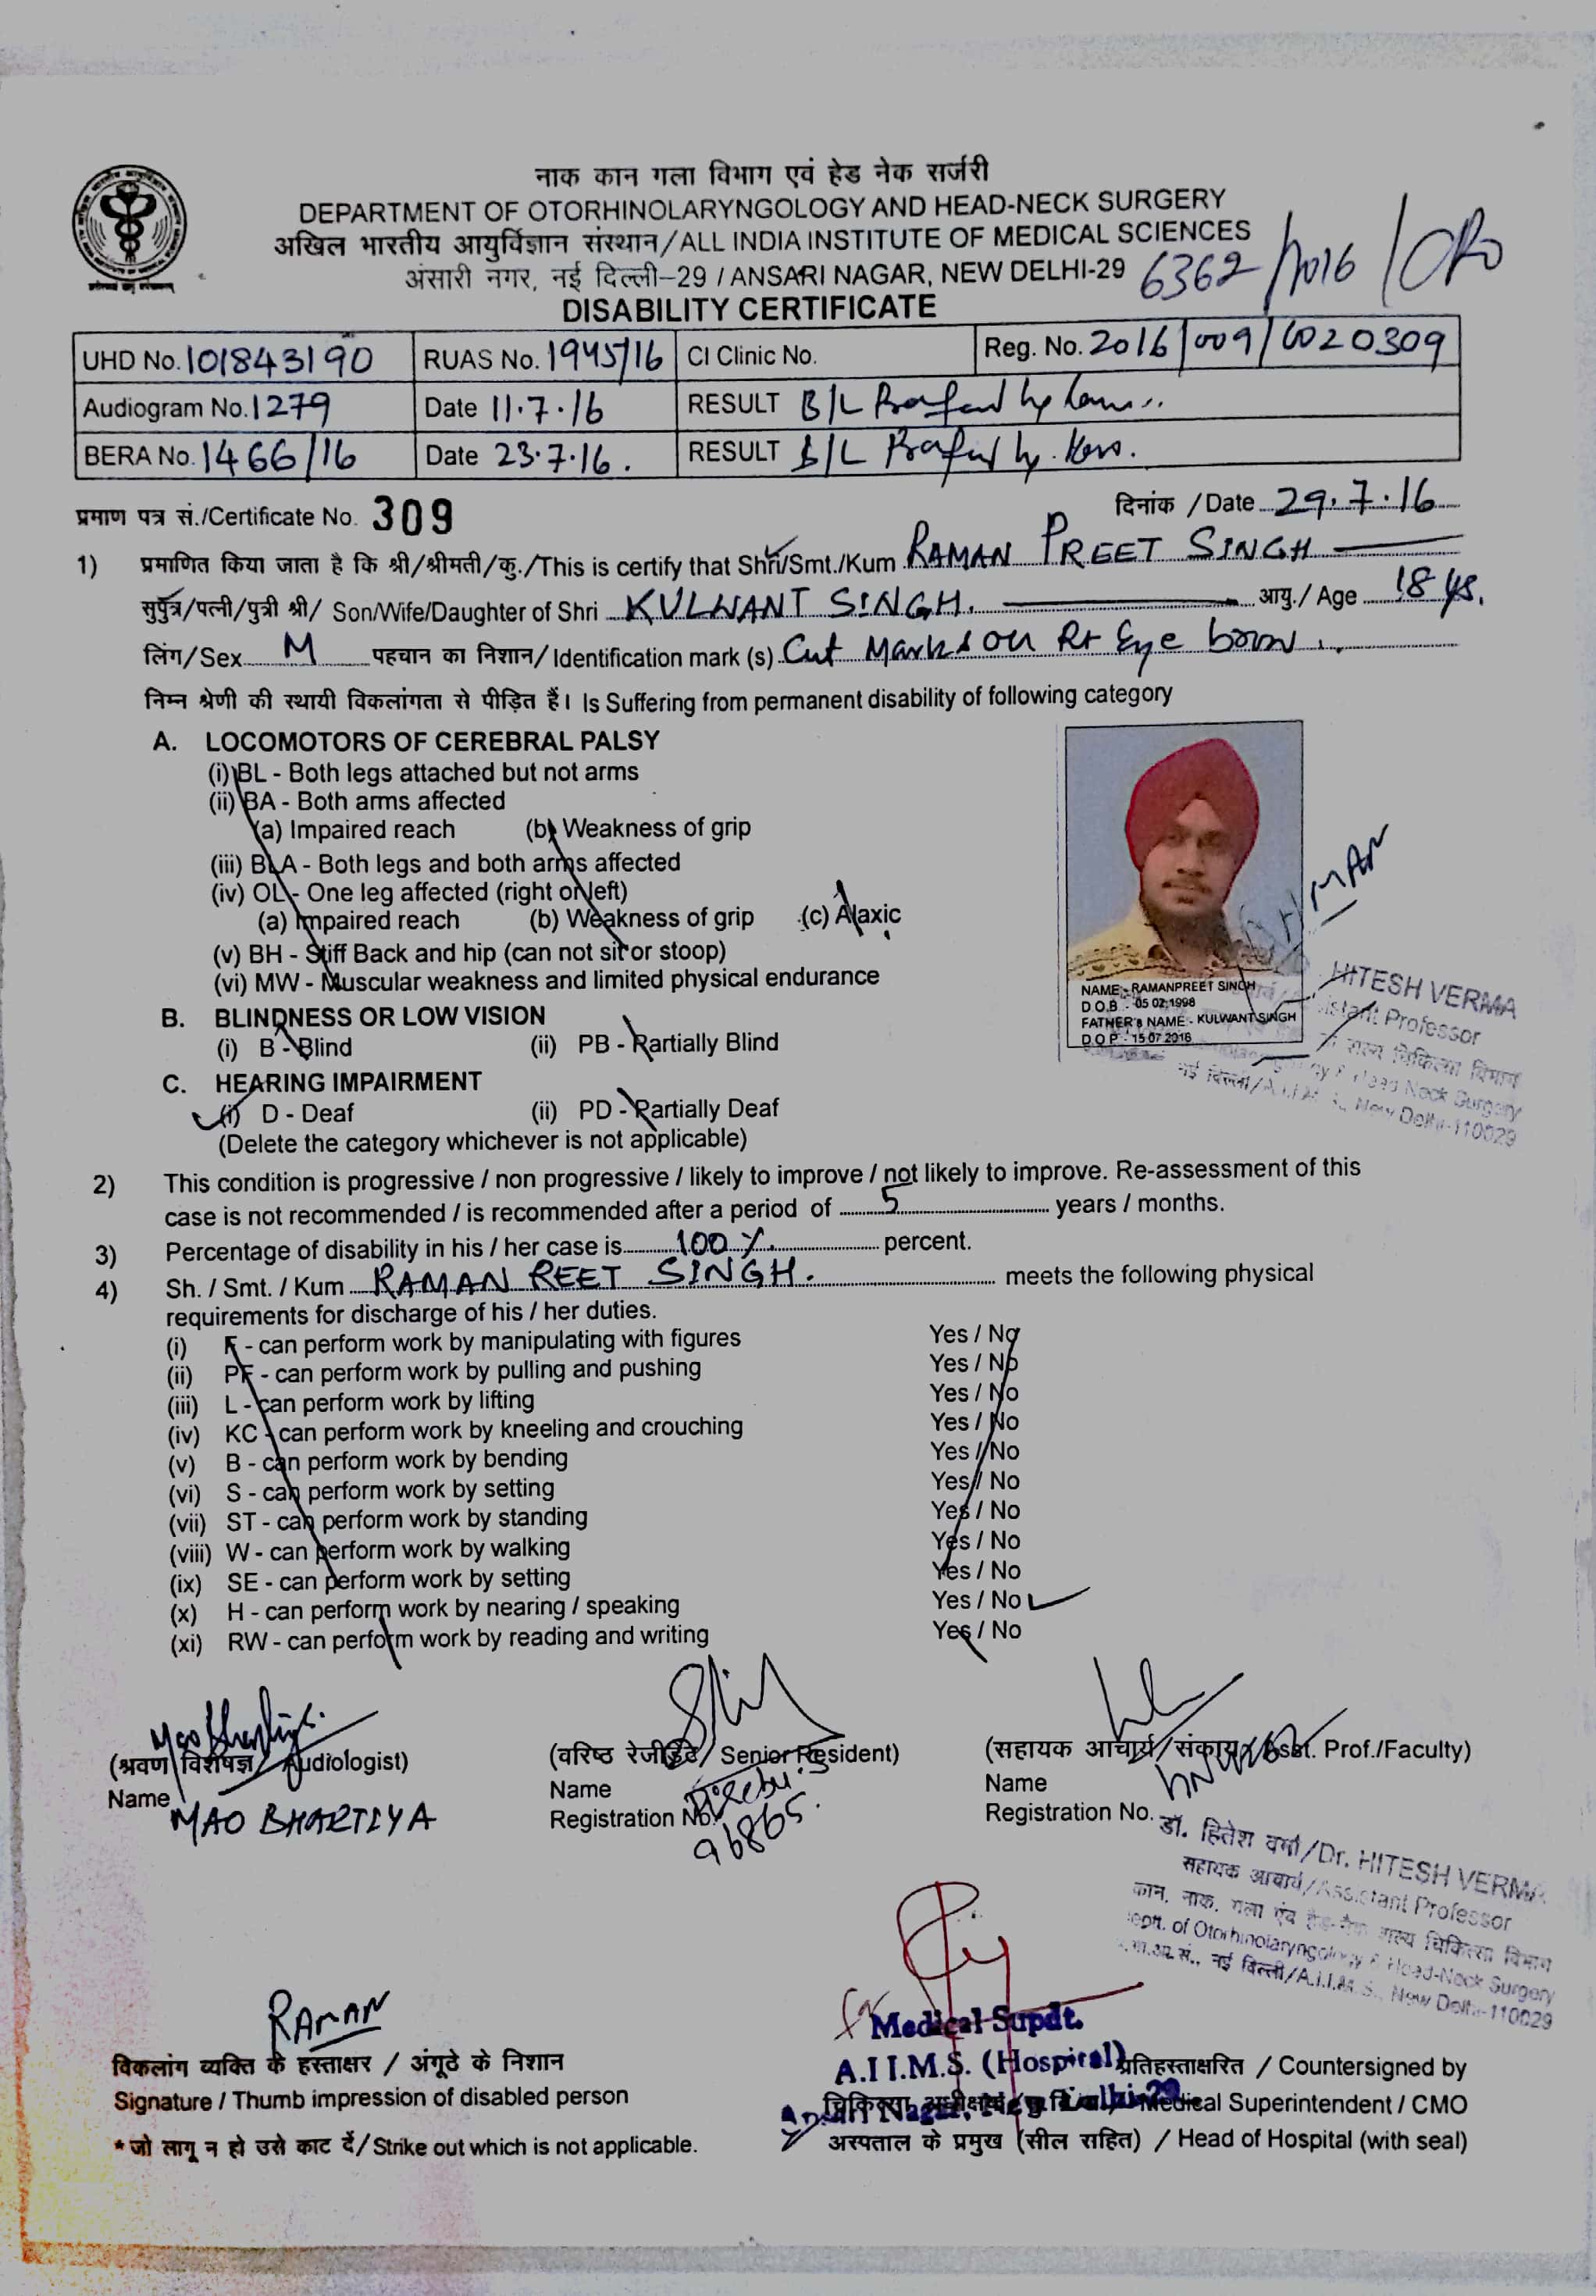 नाक कान गला विभाग एवं हेड नेक सर्जरी
DEPARTMENT OF OTORHINOLARYNGOLOGY AND HEAD-NECK SURGERY
अखिल भारतीय आयुर्विज्ञान संस्थान/ALL INDIA INSTITUTE OF MEDICAL SCIENCES
अंसारी नगर, नई दिल्ली-29 / ANSARI NAGAR, NEW DELHI-29 6362/2016/
DISABILITY CERTIFICATE
UHD No. 101843190 RUAS No. 1945/16 CI Clinic No. Reg. No. 2016/009/0020309
Audiogram No. 1279 Date 11.7.16 RESULT B/L
BERA No. 1466/16 Date 23.7.16. RESULT B/L
प्रमाण पत्र सं./Certificate No. 309 दिनांक /Date 29.7.16
1) प्रमाणित किया जाता है कि श्री/श्रीमती/कु./This is certify that Shri/Smt./Kum RAMAN PREET SINGH
सुपुत्र/पत्नी/पुत्री श्री/ Son/Wife/Daughter of Shri KULWANT SINGH. आयु./ Age 18 ys.
लिंग/Sex M पहचान का निशान/ Identification mark (s) Cut Marks on Rt Eye
निम्न श्रेणी की स्थायी विकलांगता से पीड़ित हैं। Is Suffering from permanent disability of following category
A. LOCOMOTORS OF CEREBRAL PALSY
(i) BL - Both legs attached but not arms
(ii) BA - Both arms affected
(a) Impaired reach (b) Weakness of grip
(iii) BLA - Both legs and both arms affected
(iv) OL - One leg affected (right or left)
(a) Impaired reach (b) Weakness of grip (c) Alaxic
(v) BH - Stiff Back and hip (can not sit or stoop)
(vi) MW - Muscular weakness and limited physical endurance
NAME:- RAMANPREET SINGH
D.O.B :- 05 02 1998
FATHER's NAME - KULWANT SINGH
D.O.P - 15 07 2016
HITESH VERMA
Professor
B. BLINDNESS OR LOW VISION
(i) B - Blind (ii) PB - Partially Blind
C. HEARING IMPAIRMENT
(i) D - Deaf (ii) PD - Partially Deaf
(Delete the category whichever is not applicable)
Head Neck Surgery
नई दिल्ली/A.I.I.M.S., New Delhi-110029
2) This condition is progressive / non progressive / likely to improve / not likely to improve. Re-assessment of this
case is not recommended / is recommended after a period of 5 years / months.
3) Percentage of disability in his / her case is 100 % percent.
4) Sh. / Smt. / Kum RAMAN REET SINGH. meets the following physical
requirements for discharge of his / her duties.
(i) F - can perform work by manipulating with figures Yes / No
(ii) PF - can perform work by pulling and pushing Yes / No
(iii) L - can perform work by lifting Yes / No
(iv) KC - can perform work by kneeling and crouching Yes / No
(v) B - can perform work by bending Yes / No
(vi) S - can perform work by setting Yes / No
(vii) ST - can perform work by standing Yes / No
(viii) W - can perform work by walking Yes / No
(ix) SE - can perform work by setting Yes / No
(x) H - can perform work by nearing / speaking Yes / No
(xi) RW - can perform work by reading and writing Yes / No
(श्रवण विशेषज्ञ / Audiologist) (वरिष्ठ रेजीडेंट/ Senior Resident) (सहायक आचार्य/संकाय/Asst. Prof./Faculty)
Name Name Name
MAO BHARTIYA Registration No. 96865. Registration No.
डॉ. हितेश वर्मा/Dr. HITESH VERMA
सहायक आचार्य/Assistant Professor
कान, नाक, गला एंव हैड-नैक शल्य चिकित्सा विभाग
Deptt. of Otorhinolaryngology & Head-Neck Surgery
नई दिल्ली/A.I.I.M.S., New Delhi-110029
RAMAN
for Medical Supdt.
A.I.I.M.S. (Hospital)
Ansari Nagar, New Delhi-29
विकलांग व्यक्ति के हस्ताक्षर / अंगूठे के निशान प्रतिहस्ताक्षरित / Countersigned by
Signature / Thumb impression of disabled person Medical Superintendent / CMO
*जो लागू न हो उसे काट दें/ Strike out which is not applicable. अस्पताल के प्रमुख (सील सहित) / Head of Hospital (with seal)